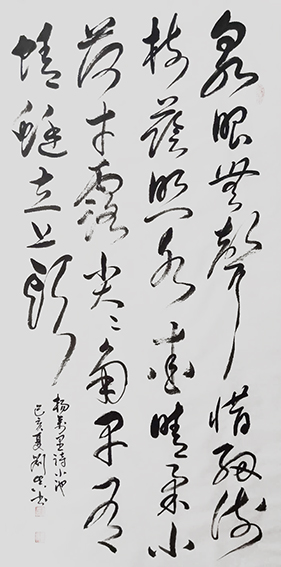 泉眼無聲惜細流
樹蔭照水愛晴柔小
荷才露尖〻角早有
蜻蜓立上頭
楊萬里詩小池
己亥夏劉書